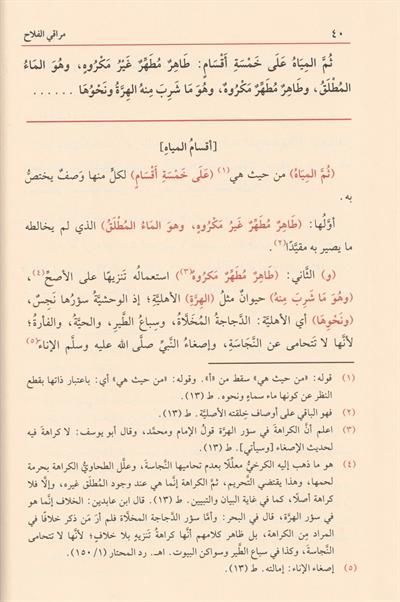 ٤٠ مراقي الفلاح
ثُمَّ المِيَاهُ عَلَى خَمْسَةِ أَقْسَامٍ: طَاهِرٌ مُطَهِّرٌ غَيْرُ مَكْرُوهٍ، وهُوَ المَاءُ
المُطْلَقُ، وطَاهِرٌ مُطَهِّرٌ مَكْرُوهٌ، وهُوَ مَا شَرِبَ مِنهُ الهِرَّةُ ونَحْوُهَا ......
[أقسامُ المياهِ]
(ثُمَّ المِيَاهُ) من حيث هي(١) (عَلَى خَمْسَةِ أَقْسَامٍ) لكلٍّ منها وَصفٌ يختصُّ
به.
أوَّلُها: (طَاهِرٌ مُطَهِّرٌ غَيرُ مَكرُوهٍ، وهوَ المَاءُ المُطْلَقُ) الذي لم يخالطه
ما يصير به مقيَّدًا(٢).
(و) الثَّاني: (طَاهِرٌ مُطَهِّرٌ مَكرُوهٌ)(٣) استعمالُه تَنزيهًا على الأصحِّ(٤)،
(وهُوَ مَا شَرِبَ مِنهُ) حيوانٌ مثلُ (الهِرَّةِ) الأهليَّةِ؛ إذ الوحشيَّةُ سؤرُها نَجِسٌ،
(ونَحْوِهَا) أي الأهليَّة: الدَّجاجةُ المُخَلَّاةُ، وسِباعُ الطَّيرِ، والحيَّةُ، والفأرةُ؛
لأنَّها لا تَتحامى عن النَّجَاسَةِ، وإصغاءُ النَّبيِّ صلَّى الله عليه وسلَّم الإناءَ(٥)
(١) قوله: «من حيث هي» سقط من «أ». وقوله: «من حيث هي» أي: باعتبار ذاتها بقطع
النظر عن كونها ماء سماءٍ ونحوه. ط (١٣).
(٢) فهو الباقي على أوصاف خِلقته الأصليَّة. ط (١٣).
(٣) اعلم أنَّ الكراهة في سؤر الهرَّة قولُ الإمام ومحمَّد، وقال أبو يوسف: لا كراهة فيه
لحديث الإصغاء [وسيأتي]. ط (١٣).
(٤) هو ما ذهب إليه الكرخيُّ معلِّلًا بعدم تحاميها النَّجاسةَ، وعلَّل الطحاويُّ الكراهة بحرمة
لحمها، وهذا يقتضي التَّحريم، ثمَّ الكراهة إنَّما هي عند وجود المُطلَق غيره، وإلَّا فلا
كراهة أصلًا، كما في غاية البيان والتبيين. ط (١٣). قال ابن عابدين: الخلاف إنَّما هو
في سؤر الهرَّة، قال في البحر: وأمَّا سؤر الدَّجاجة المخلَّاة فلم أرَ مَن ذكر خلافًا في
المراد مِن الكراهة، بل ظاهر كلامهم أنَّها كراهةُ تَنزيهٍ بلا خلافٍ؛ لأنَّها لا تتحامى
النَّجاسة، وكذا في سباع الطَّير وسواكن البيوت. اهـ. رد المحتار (١/ ١٥٠).
(٥) إصغاء الإناء: إمالته. ط (١٣).